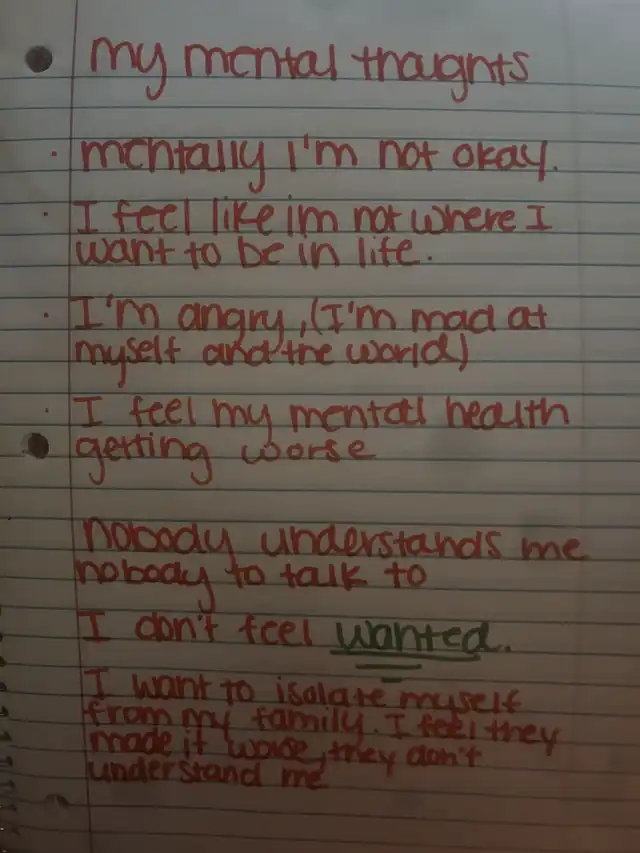 my mental thoughts
· mentally I'm not okay.
· I feel like im not where I
want to be in life.
· I'm angry, (I'm mad at
myself and the world)
· I feel my mental health
getting worse
nobody understands me
nobody to talk to
I don't feel wanted.
I want to isolate myself
from my family. I feel they
made it worse, they don't
understand me